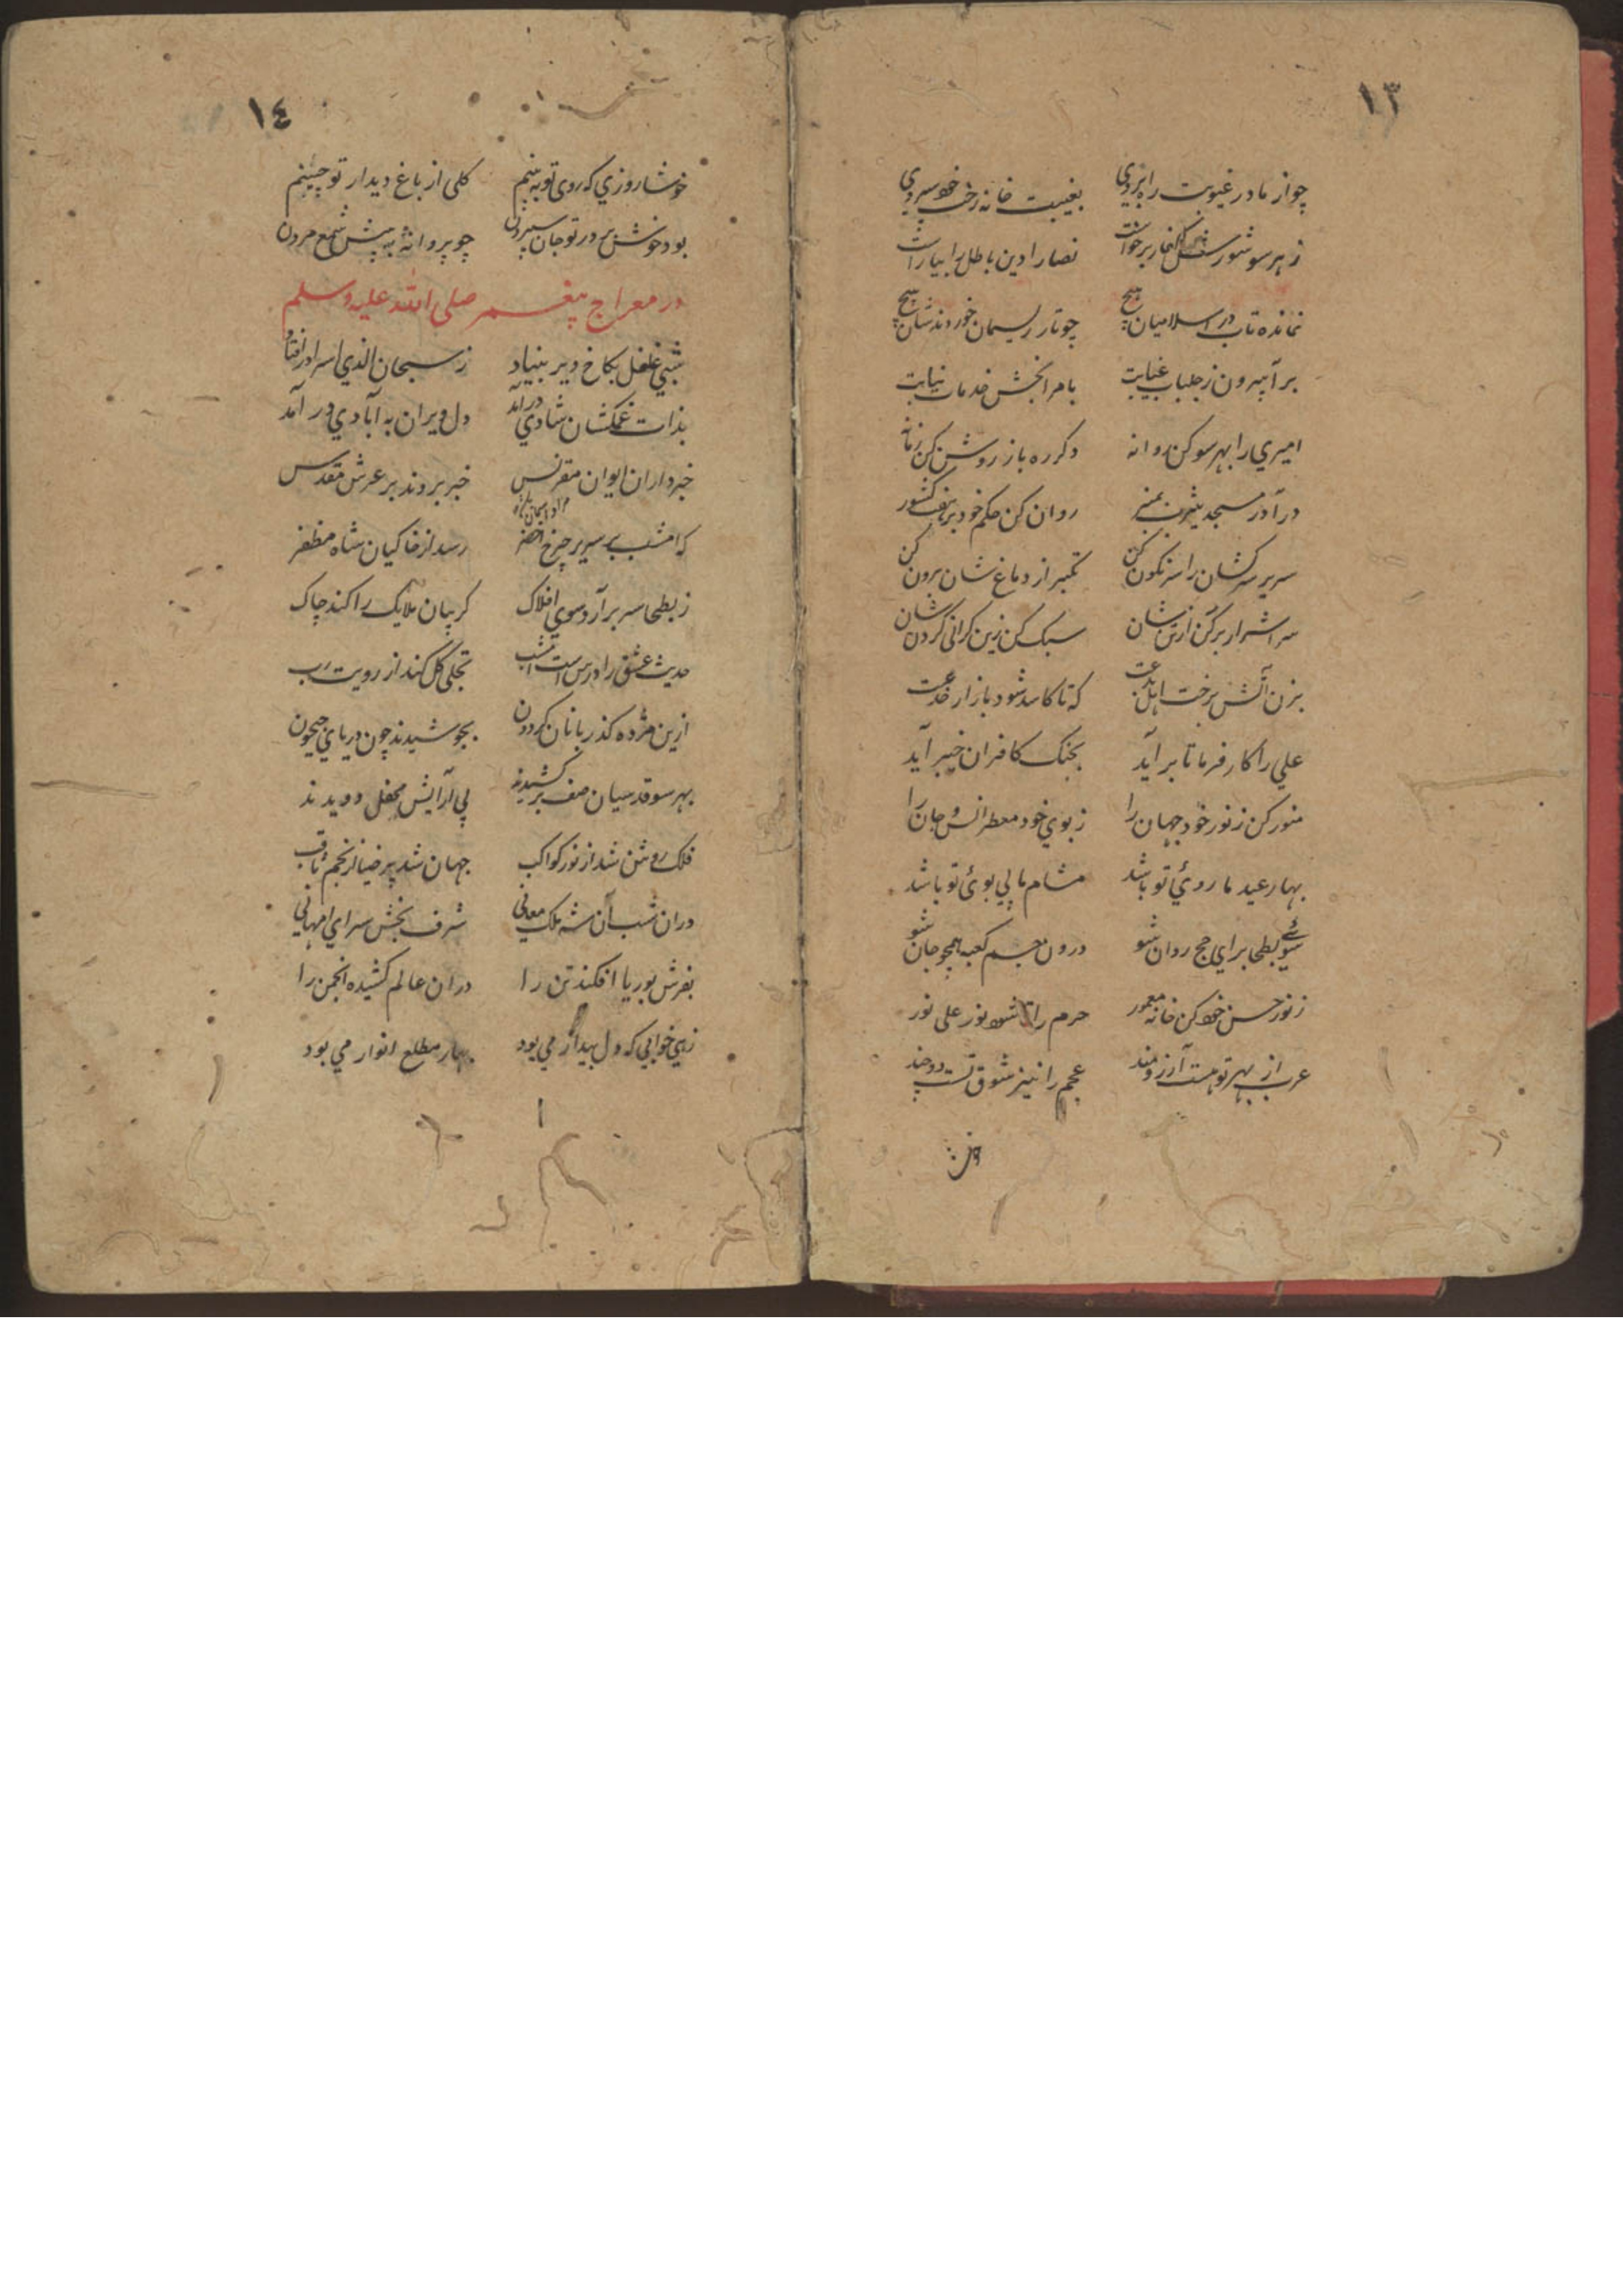 ١٣
چو از ما در غیوبت راه بردي بغیبت خانه رخت خود سپردي
ز هر سو شورش کفار برخواست نصارا دین باطل را بیاراست
نمانده تاب در اسلامیان هیچ چو تار ریسمان خوردند شان پیچ
برآ بیرون ز جلباب غیابت بامر الخش خدمات نیابت
امیري را بهر سو کن روانه دکر ره باز روشن کن زمانه
درآ در مسجد یثرب بمنبر روان کن حکم خود بر هفت کشور
سریر سرکشان را سرنکون کن تکبر از دماغ شان برون کن
سر اشرار برکن از تن شان سبک کن زین کرانی کردن شان
بزن آتش برخت اهل بدعت که تا کاسد شود بازار خدعت
علي را کار فرما تا برآید بجنک کافران خیبر آید
منور کن ز نور خود جهان را ز بوي خود معطر انس و جان را
بهار عید ما روئي تو باشد مشام ما پي بوئ تو باشد
سوئے بطحا براي حج روان شو درون جسم کعبه همچو جان شو
ز نور حسن خود کن خانه معمور حرم را تا شود نور علی نور
عرب از بهر تو هست آرزومند عجم را نیز شوق تست
١٤
خوشا روزي که روی تو به بینم کلی از باغ دیدار تو چینم
بود خوش بر در تو جان سپردن چو پروانه به پیش شمع مردن
در معراج پیغمبر صلی الله علیه وسلم
شبي غلغل بکاخ دیر بنیاد ز سبحان الذي اسرا در افتاد
بذات غمکشان شادي درآمد دل ویران به آبادي در آمد
خبرداران ایوان مقرنس خبر بردند بر عرش مقدس
که امشب بر سریر چرخ اخضر رسد از خاکیان شاه مظفر
ز بطحا سر برآرد سوي افلاک کریبان ملایک را کند چاک
حدیث عشق را درس است امشب تجلی کل کند از رویت رب
ازین مژده کذربانان کردون بجوشیدند چون دریاي جیحون
بهر سو قدسیان صف برکشیدند پی آرایش محفل دویدند
فلک روشن شد از نور کواکب جهان شد پر ضیا از نجم ثاقب
دران شب آن شه ملک معاني شرف بخش سراي امهاني
بفرش بوریا افکند تن را دران عالم کشیده انجمن را
زهي خوابي که دل بیدار مي بود بهار مطلع انوار مي بود